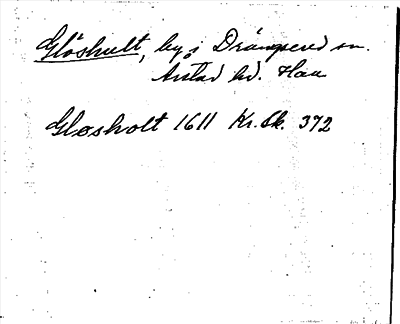 Glöshult, by i Drängsered sn.
Årstad hd. Hall
Gløsholt 1611 Kr. Sk. 372